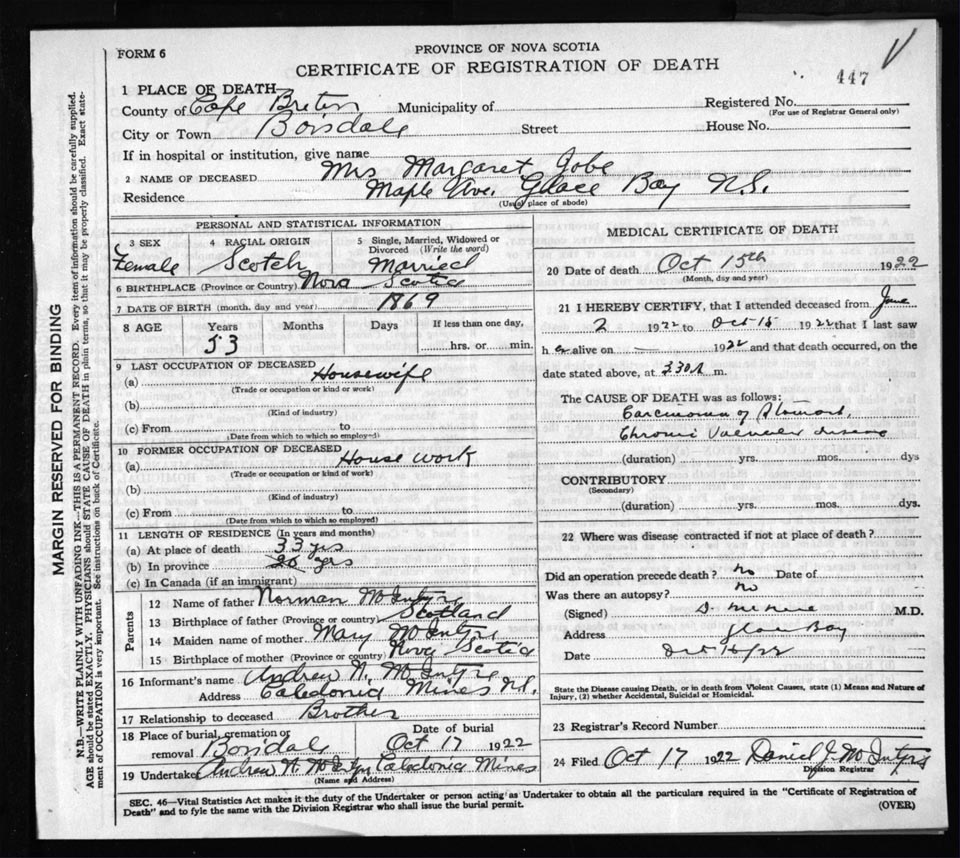 FORM 6
PROVINCE OF NOVA SCOTIA
CERTIFICATE OF REGISTRATION OF DEATH
447
1 PLACE OF DEATH
County of Cape Breton Municipality of Registered No.
(For use of Registrar General only)
City or Town Boisdale Street House No.
If in hospital or institution, give name
2 NAME OF DECEASED Mrs Margaret Jobe
Residence Maple Ave. Glace Bay N.S.
(Usual place of abode)
PERSONAL AND STATISTICAL INFORMATION
3 SEX 4 RACIAL ORIGIN 5 Single, Married, Widowed or Divorced (Write the word)
Female Scotch Married
6 BIRTHPLACE (Province or Country) Nova Scotia
7 DATE OF BIRTH (month, day and year) 1869
8 AGE Years Months Days If less than one day,
53 hrs. or min.
9 LAST OCCUPATION OF DECEASED
(a) Housewife
(Trade or occupation or kind or work)
(b)
(Kind of industry)
(c) From to
(Date from which to which so employed)
10 FORMER OCCUPATION OF DECEASED
(a) House work
(Trade or occupation or kind of work)
(b)
(Kind of industry)
(c) From to
(Date from which to which so employed)
11 LENGTH OF RESIDENCE (In years and months)
(a) At place of death 33 yrs
(b) In province yrs
(c) In Canada (if an immigrant)
Parents
12 Name of father Norman McIntyre
13 Birthplace of father (Province or country) Scotland
14 Maiden name of mother Mary McIntyre
15 Birthplace of mother (Province or country) Nova Scotia
16 Informant's name Andrew N. McIntyre
Address Caledonia Mines N.S.
17 Relationship to deceased Brother
18 Place of burial, cremation or removal Boisdale
Date of burial
Oct 17 1922
19 Undertaker Andrew N McIntyre Caledonia Mines
(Name and Address)
MEDICAL CERTIFICATE OF DEATH
20 Date of death Oct 15th 1922
(Month, day and year)
21 I HEREBY CERTIFY, that I attended deceased from June
2 1922 to Oct 15 1922 that I last saw
her alive on 1922 and that death occurred, on the
date stated above, at 330 m.
The CAUSE OF DEATH was as follows:
Carcinoma of Stomach,
Chronic Valvular disease
(duration) yrs. mos. dys
CONTRIBUTORY
(Secondary)
(duration) yrs. mos. dys.
22 Where was disease contracted if not at place of death?
Did an operation precede death? No Date of
Was there an autopsy? No
(Signed) M.D.
Address Glace Bay
Date Oct
State the Disease causing Death, or in death from Violent Causes, state (1) Means and Nature of
Injury, (2) whether Accidental, Suicidal or Homicidal.
23 Registrar's Record Number
24 Filed Oct 17 1922 Daniel J. McIntyre
Division Registrar
SEC. 46—Vital Statistics Act makes it the duty of the Undertaker or person acting as Undertaker to obtain all the particulars required in the "Certificate of Registration of
Death" and to fyle the same with the Division Registrar who shall issue the burial permit.
(OVER)
MARGIN RESERVED FOR BINDING
N.B.—WRITE PLAINLY WITH UNFADING INK—THIS IS A PERMANENT RECORD. Every item of information should be carefully supplied.
AGE should be stated EXACTLY. PHYSICIANS should STATE CAUSE OF DEATH in plain terms, so that it may be properly classified. Exact state-
ment of OCCUPATION is very important. See instructions on back of Certificate.